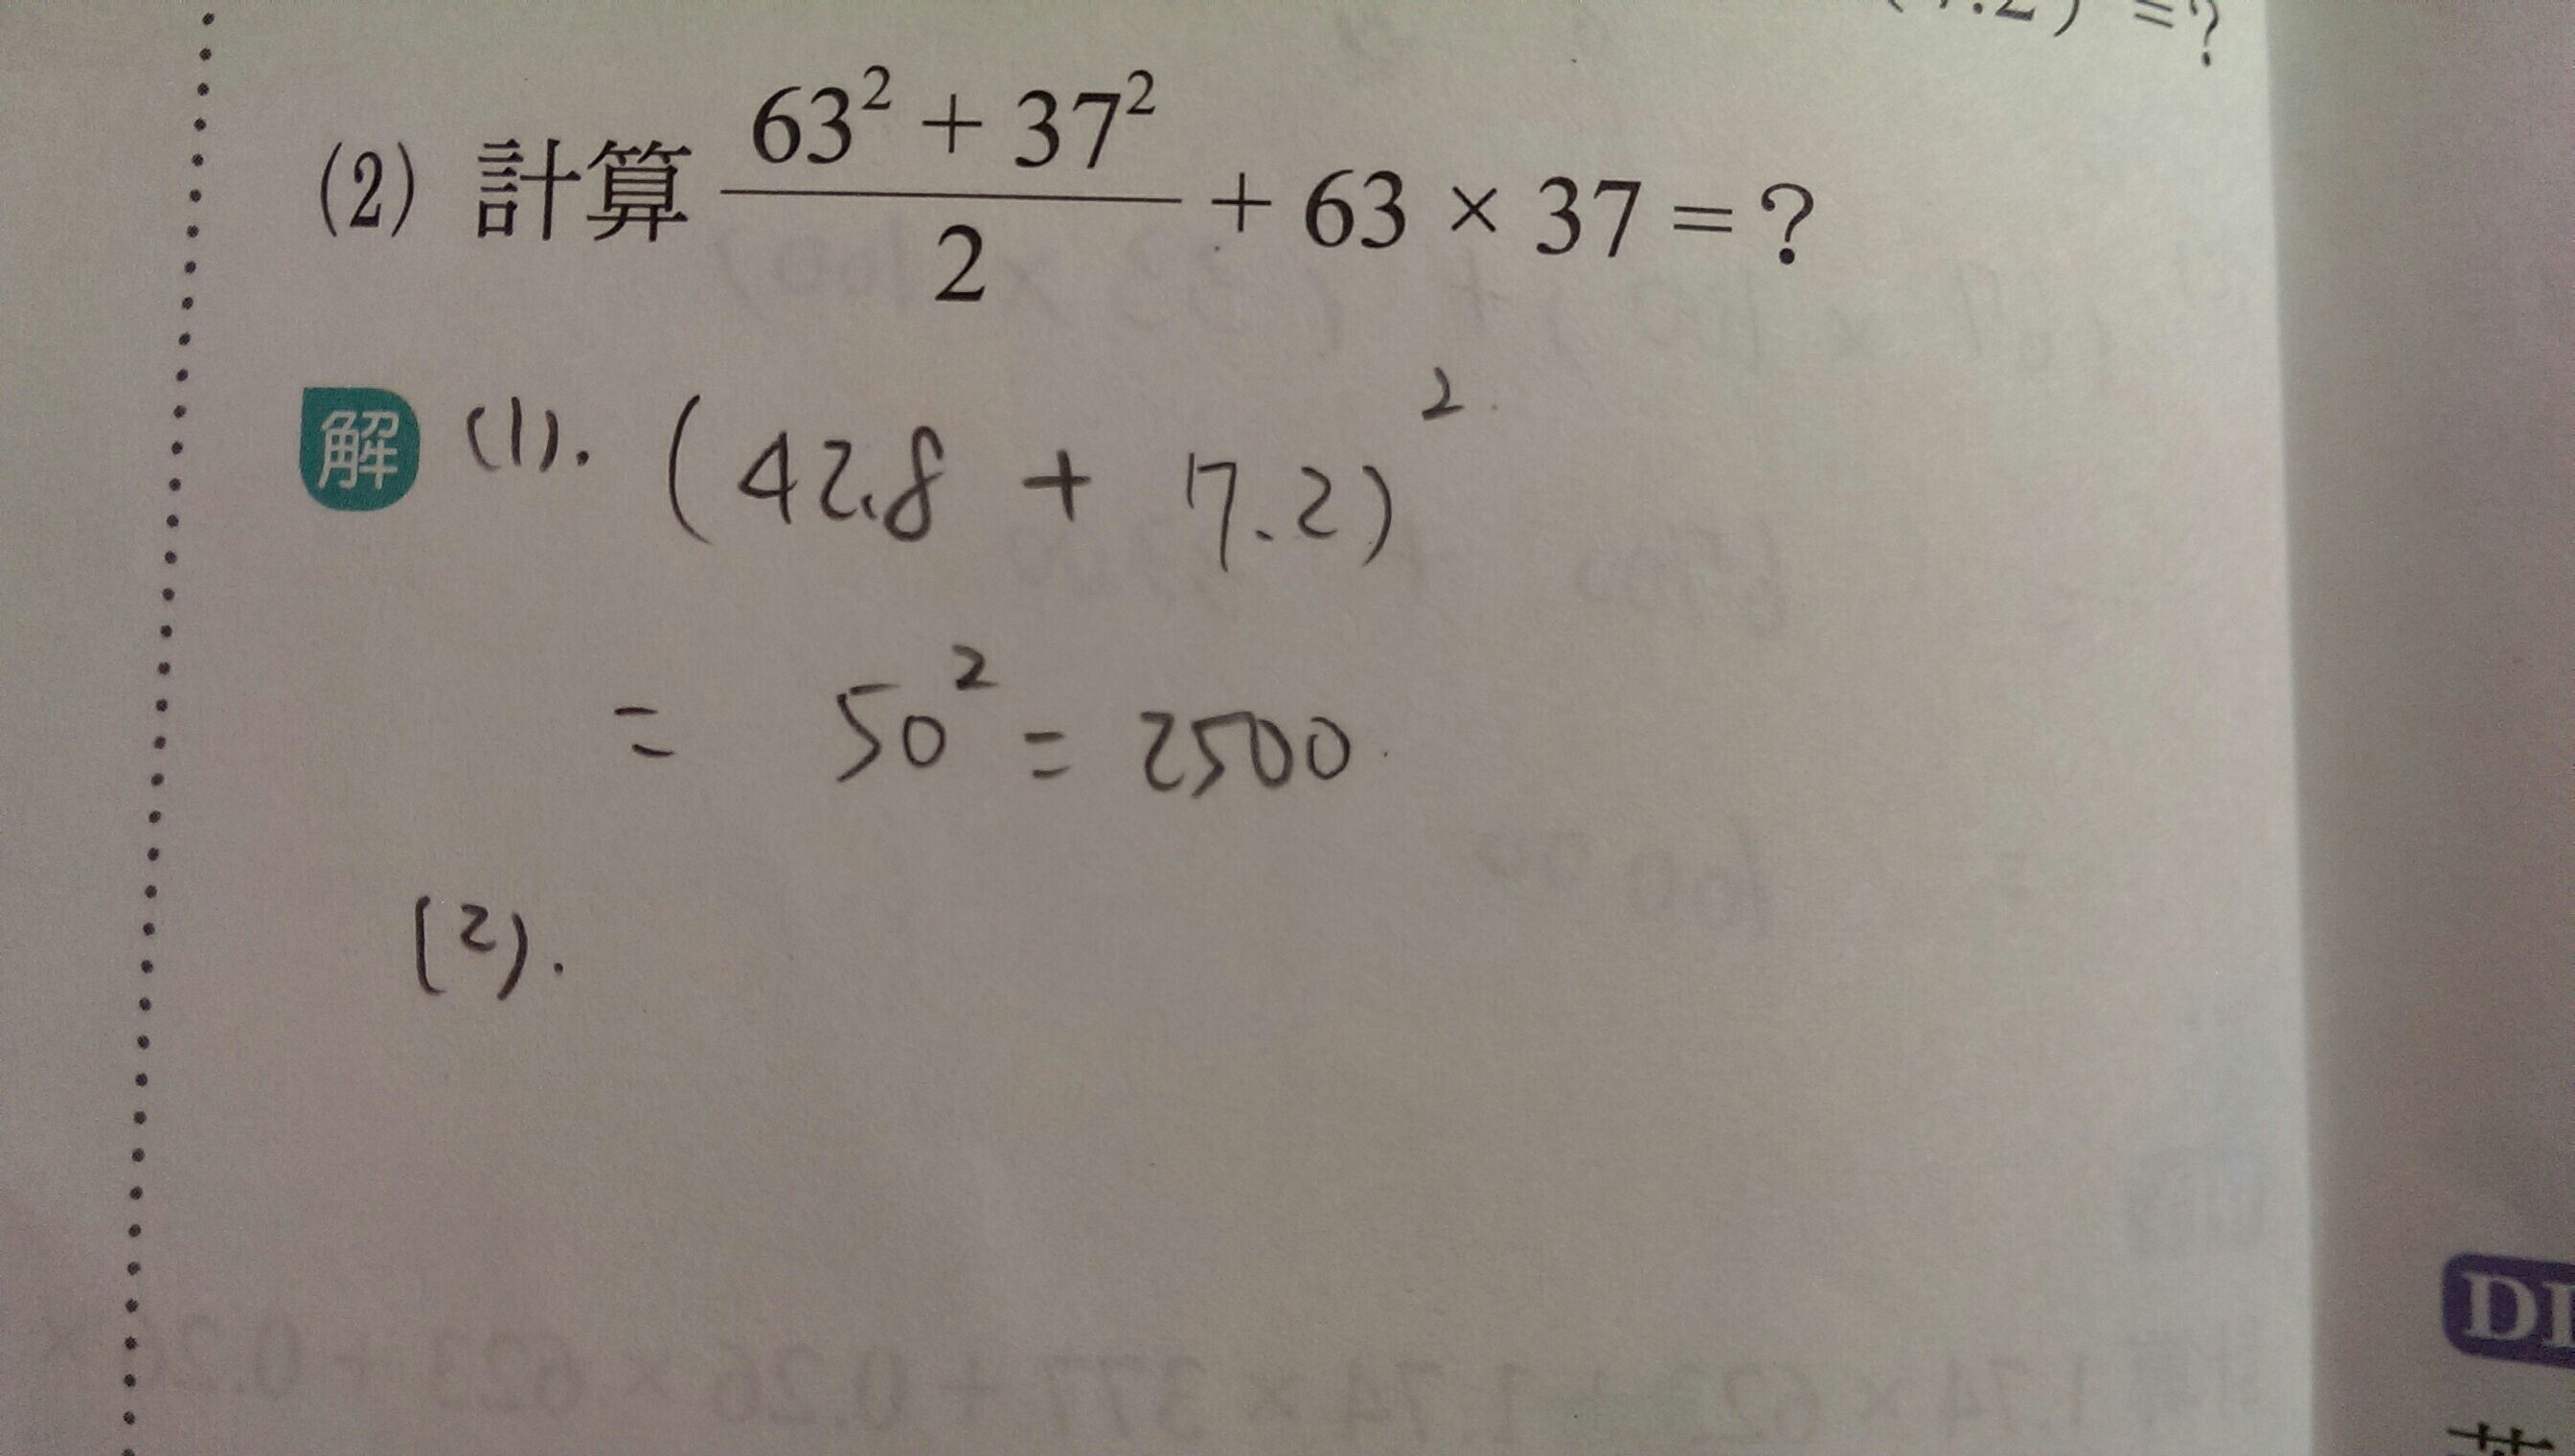 .2) =?
(2) 計算 (63² + 37²)/2 + 63 × 37 = ?
解 (1). (42.8 + 7.2)²
= 50² = 2500
(2).
DI